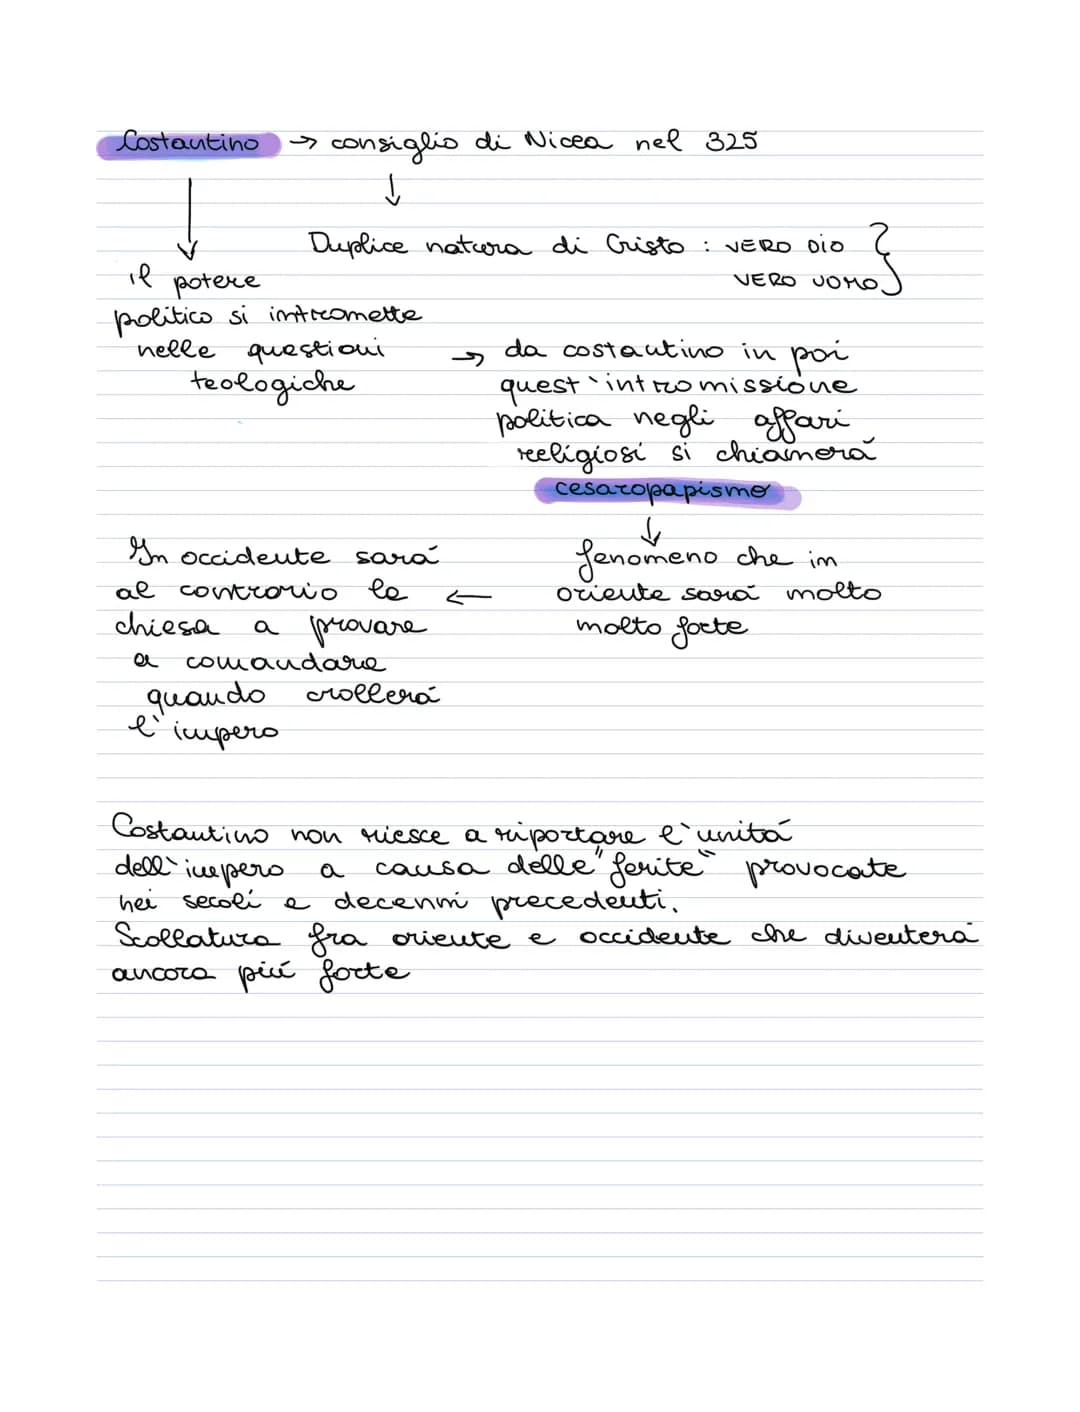 Costantino → consiglio di Nicea nel 325
↓
Duplice natura di Cristo : VERO DIO
VERO UOMO
il potere
politico si intromette
nelle questioni
teologiche
→ da costantino in poi
quest'intromissione
politica negli affari
religiosi si chiamerá
cesaropapismo
↓
fenomeno che in
oriente sará molto
molto forte
←
In occidente sará
al contrario la
chiesa a provare
a comandare
quando crollerá
l'impero
Costantino non riesce a riportare l'unitá
dell'impero a causa delle "ferite" provocate
nei secoli e decenni precedenti.
Scollatura fra oriente e occidente che diventerá
ancora piú forte